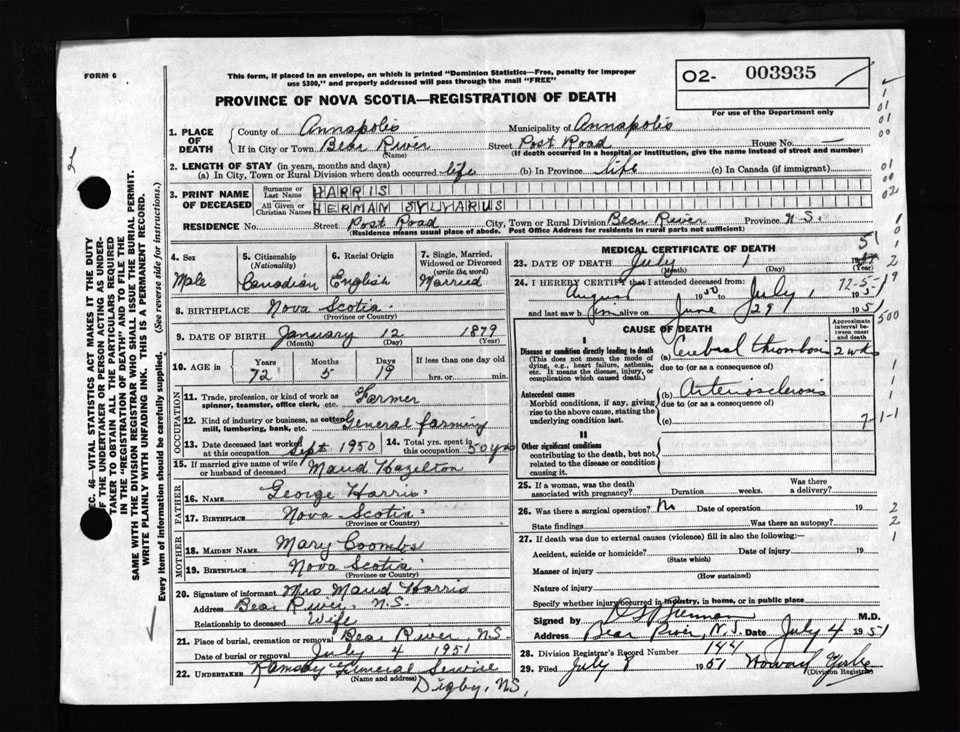 FORM 6
This form, if placed in an envelope, on which is printed "Dominion Statistics—Free, penalty for improper
use $300," and properly addressed will pass through the mail "FREE"
O2- 003935
For use of the Department only
PROVINCE OF NOVA SCOTIA—REGISTRATION OF DEATH
SEC. 46—VITAL STATISTICS ACT MAKES IT THE DUTY
OF THE UNDERTAKER OR PERSON ACTING AS UNDER-
TAKER TO OBTAIN ALL THE PARTICULARS REQUIRED
IN THE "REGISTRATION OF DEATH" AND TO FILE THE
SAME WITH THE DIVISION REGISTRAR WHO SHALL ISSUE THE BURIAL PERMIT.
WRITE PLAINLY WITH UNFADING INK. THIS IS A PERMANENT RECORD.
Every item of information should be carefully supplied. (See reverse side for instructions.)
1. PLACE OF DEATH
County of Annapolis Municipality of Annapolis
If in City or Town Bear River Street Post Road House No. —
(Name) (If death occurred in a hospital or institution, give the name instead of street and number)
2. LENGTH OF STAY (in years, months and days)
(a) In City, Town or Rural Division where death occurred life (b) In Province life (c) In Canada (if immigrant)
3. PRINT NAME OF DECEASED
Surname or Last Name HARRIS
All Given or Christian Names HERMAN SYLVARUS
RESIDENCE No. Street Post Road City, Town or Rural Division Bear River Province N.S.
(Residence means usual place of abode. Post Office Address for residents in rural parts not sufficient)
4. Sex Male
5. Citizenship (Nationality) Canadian
6. Racial Origin English
7. Single, Married, Widowed or Divorced (write the word) Married
8. BIRTHPLACE Nova Scotia
(Province or Country)
9. DATE OF BIRTH January 12 1879
(Month) (Day) (Year)
10. AGE in Years Months Days If less than one day old
72 5 19 hrs. or min.
OCCUPATION
11. Trade, profession, or kind of work as
spinner, teamster, office clerk, etc. Farmer
12. Kind of industry or business, as cotton
mill, lumbering, bank, etc. General farming
13. Date deceased last worked
at this occupation Sept 1950
14. Total yrs. spent in
this occupation 50 yrs
15. If married give name of wife
or husband of deceased Maud Hazelton
FATHER
16. Name George Harris
17. Birthplace Nova Scotia
(Province or Country)
MOTHER
18. Maiden Name Mary Coombs
19. Birthplace Nova Scotia
(Province or Country)
20. Signature of informant Mrs Maud Harris
Address Bear River, N.S.
Relationship to deceased Wife
21. Place of burial, cremation or removal Bear River, N.S.
Date of burial or removal July 4 1951
22. Undertaker Ramsay Funeral Service
(Name and address) Digby, N.S.
MEDICAL CERTIFICATE OF DEATH
23. DATE OF DEATH July 1 51
(Month) (Day) (Year)
24. I HEREBY CERTIFY that I attended deceased from: 72-5-19
August 1950 to July 1 1951
and last saw him alive on June 29 1951
CAUSE OF DEATH
Approximate interval between onset and death
I
Disease or condition directly leading to death
(This does not mean the mode of
dying, e.g., heart failure, asthenia,
etc. It means the disease, injury, or
complication which caused death.)
(a) Cerebral thrombosis 2 wks
due to (or as a consequence of)
Antecedent causes
Morbid conditions, if any, giving
rise to the above cause, stating the
underlying condition last.
(b) Arteriosclerosis
due to (or as a consequence of)
(c) 7-1-1
II
Other significant conditions
contributing to the death, but not
related to the disease or condition
causing it.
25. If a woman, was the death
associated with pregnancy? Duration weeks. Was there a delivery?
26. Was there a surgical operation? No Date of operation 19
State findings Was there an autopsy?
27. If death was due to external causes (violence) fill in also the following:—
Accident, suicide or homicide? Date of injury 19
(State which)
Manner of injury
(How sustained)
Nature of injury
Specify whether injury occurred in industry, in home, or in public place
Signed by M.D.
Address Bear River, N.S. Date July 4 1951
28. Division Registrar's Record Number 144
29. Filed July 8 1951 Howard
(Division Registrar)